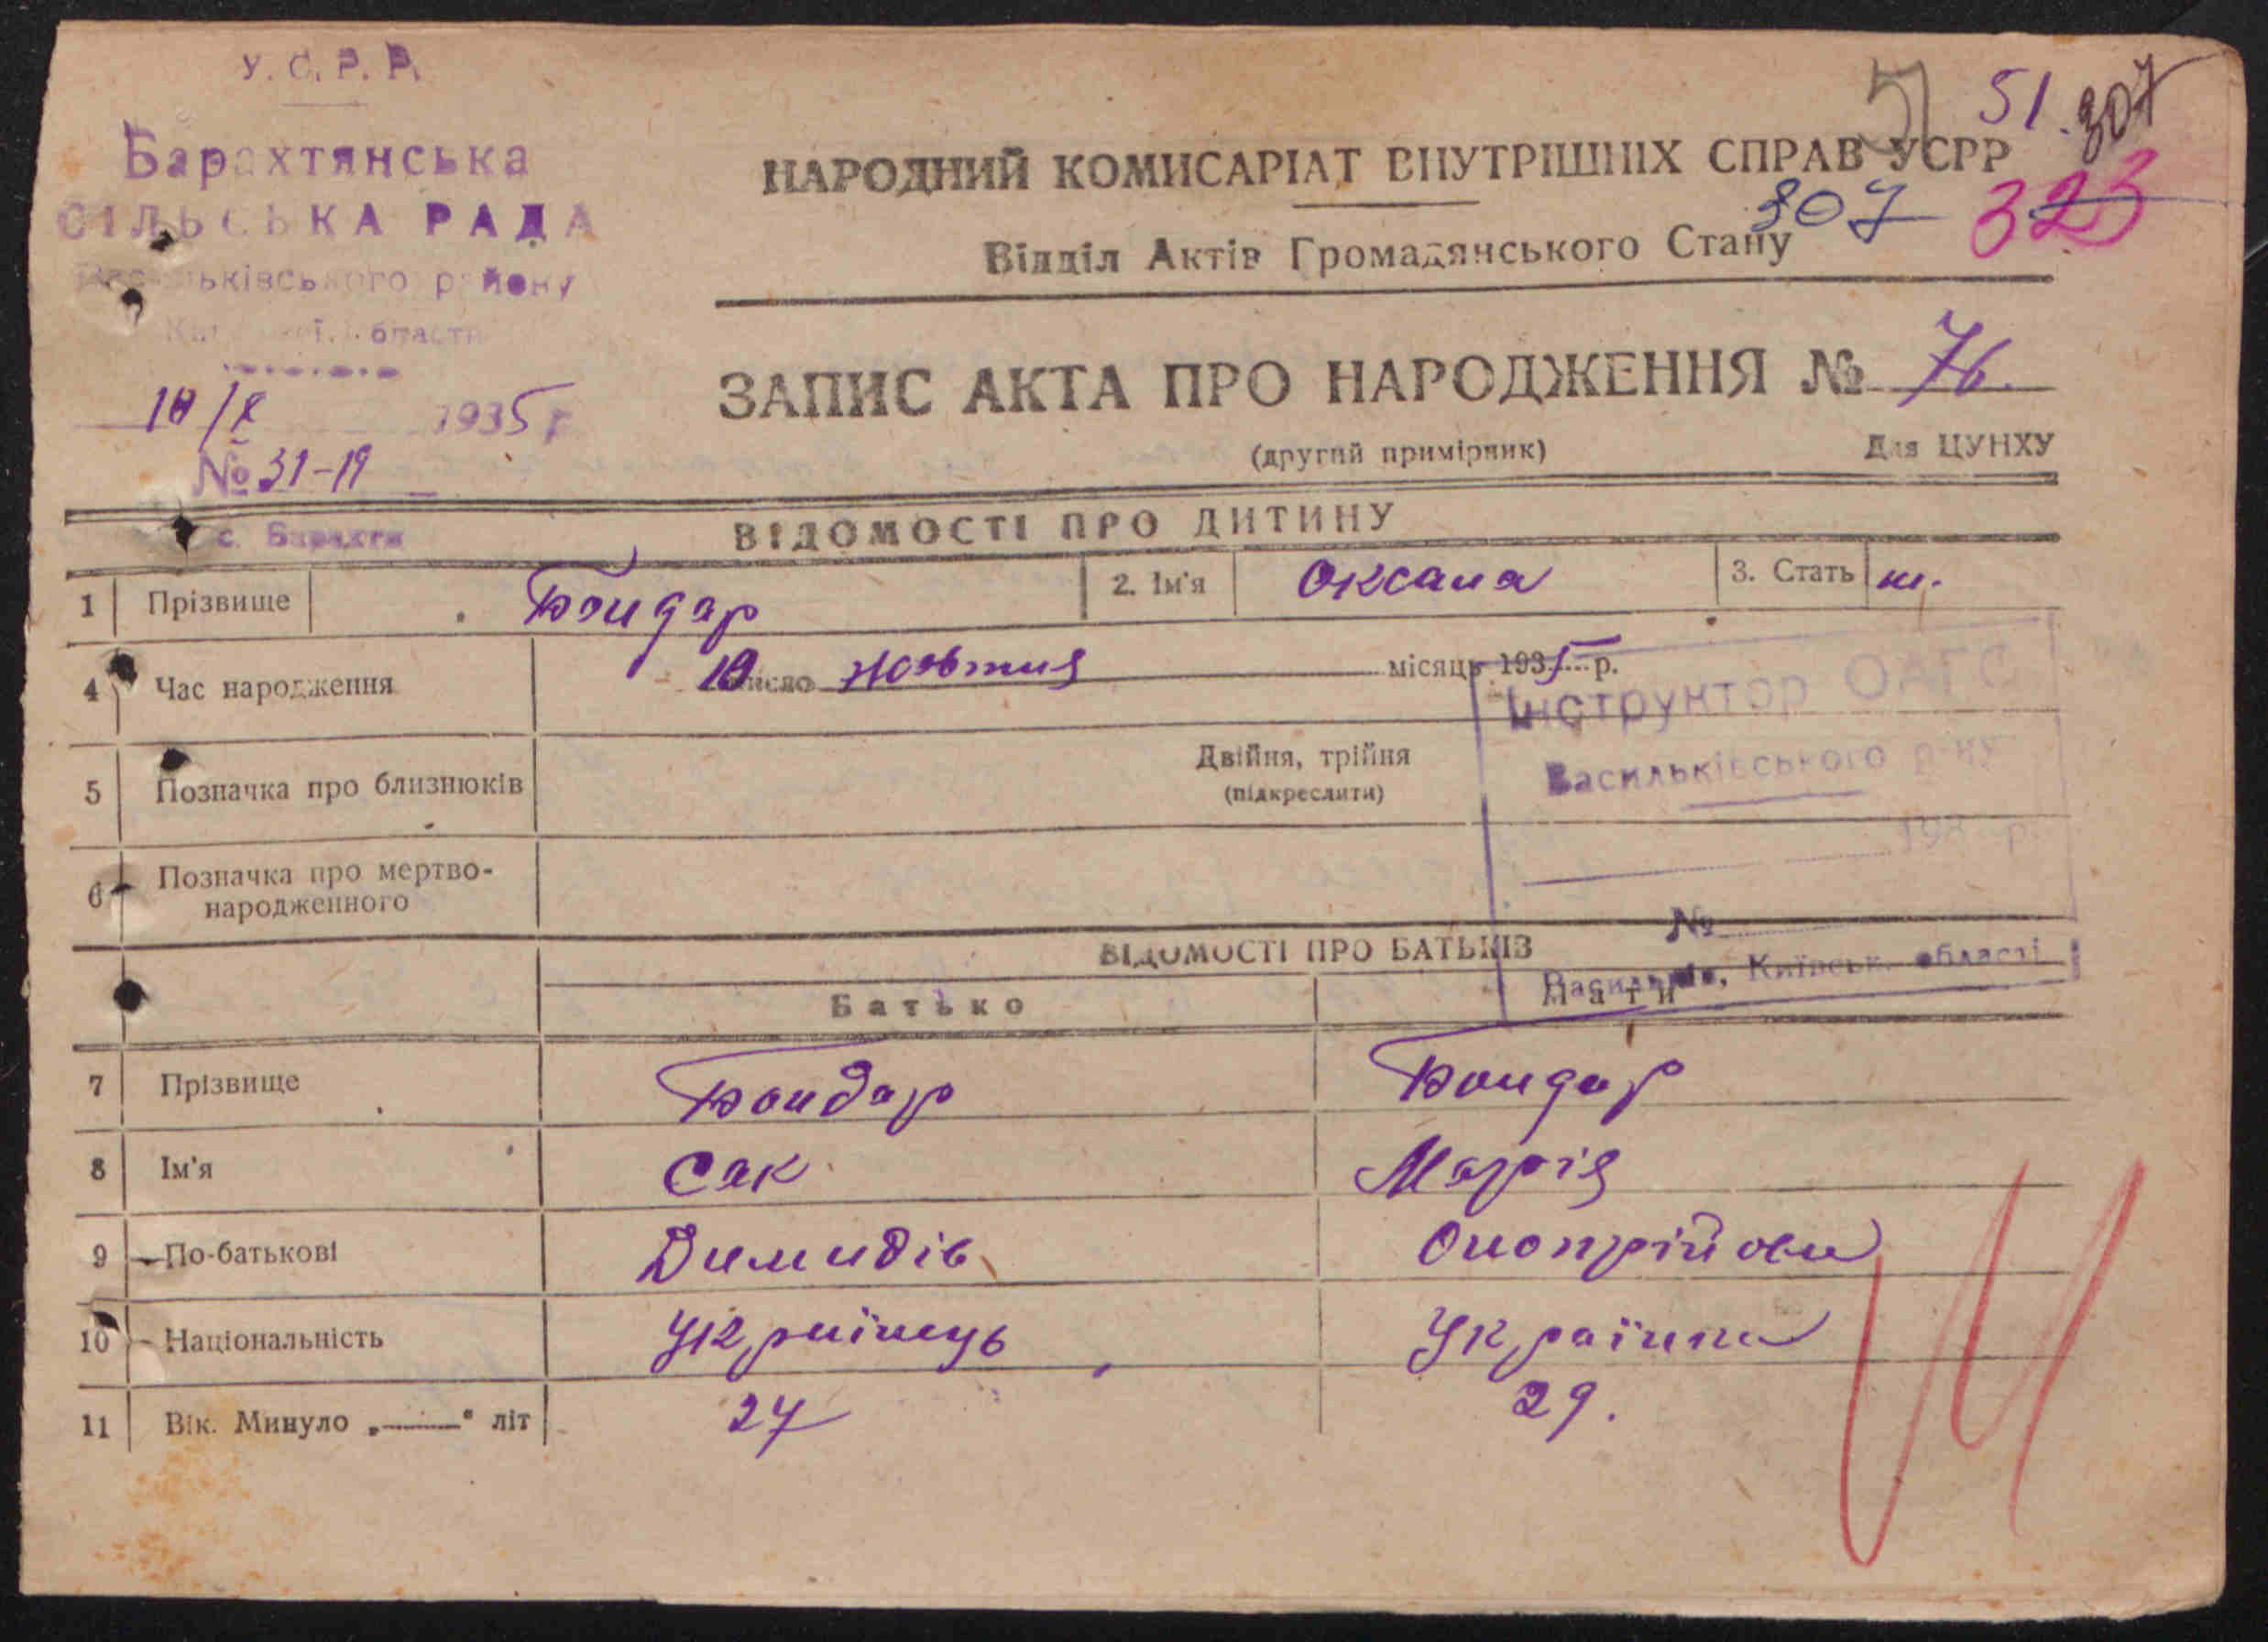 У. С. Р. Р.
Барахтянська
СІЛЬСЬКА РАДА
Васильківського району
Київської області
10/X 1935 р
№ 31-19
с. Барахти
51 51. 307
НАРОДНИЙ КОМИСАРІАТ ВНУТРІШНІХ СПРАВ УСРР
307 323
Відділ Актів Громадянського Стану
ЗАПИС АКТА ПРО НАРОДЖЕННЯ № 76.
(другий примірник) Для ЦУНХУ
ВІДОМОСТІ ПРО ДИТИНУ
1 Прізвище Бондар 2. Ім'я Оксана 3. Стать ж.
4 Час народження 10 число жовтня місяць 1935 р.
Інструктор ОАГС
Васильківського р-ну
193 р.
№
Васильків, Київськ. області
5 Позначка про близнюків Двійня, трійня
(підкреслити)
6 Позначка про мертво-
народженного
ВІДОМОСТІ ПРО БАТЬКІВ
Батько Мати
7 Прізвище Бондар Бондар
8 Ім'я Сак Марія
9 По-батькові Димидів Онопрійова
10 Національність Українець Українка
11 Вік. Минуло „——“ літ 27 29.